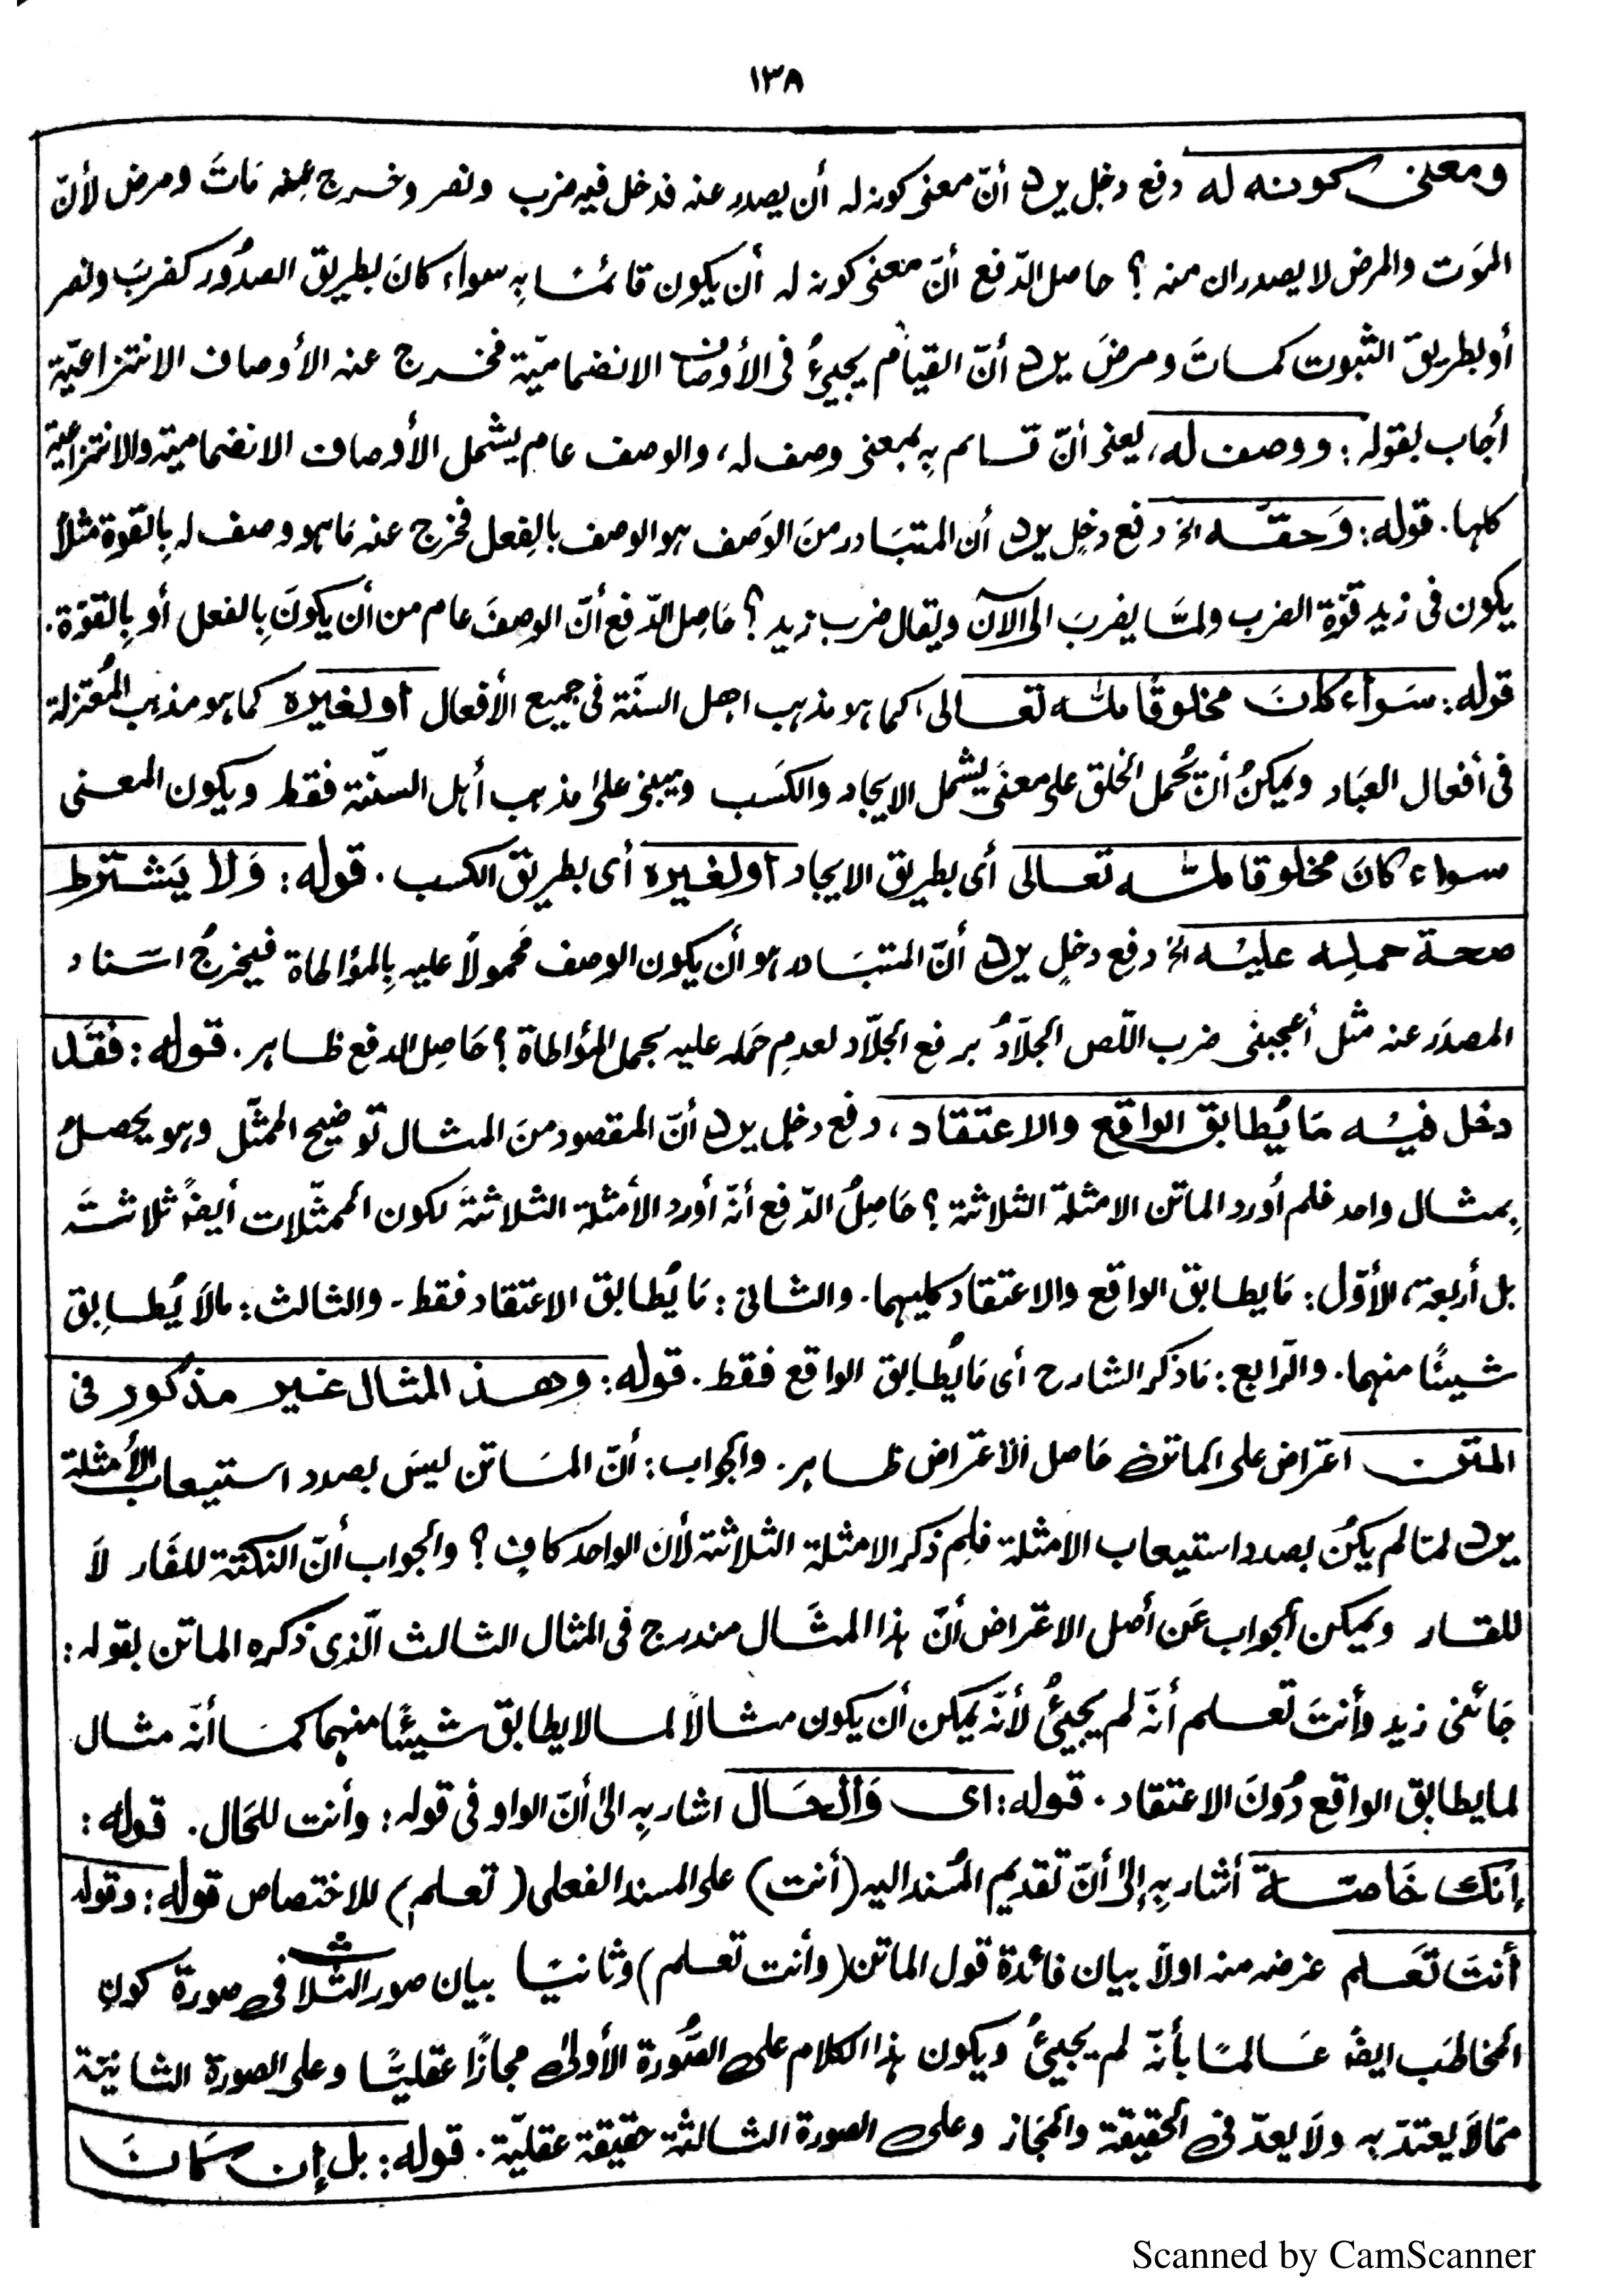 ١٣٨
ومعنى كونه له دفع دخل يرد أنّ معنى كونه له أن يصدر عنه فدخل فيه ضرب ونصر وخرج عنه مَاتَ ومرض لأنّ
الموَت والمرض لا يصدران منه ؟ حاصل الدّفع أنّ معنى كونه له أن يكون قائمًا بِه سواء كانَ بطريق الصدُور كضربَ ونصر
أو بطريق الثبوت كماتَ ومرضَ يرد أنّ القيام يجيئُ فى الأوصاف الانضماميّة فخرج عنه الأوصاف الانتزاعيّة
أجاب بقوله : ووصف له، يعنى أنّ قائم بِه بمعنى وصف له، والوصف عام يشمل الأوصاف الانضمامية والانتزاعية
كلها. قوله: وَحقّه الخ دفع دخلٍ يرد أن المتبَادر منَ الوَصف هو الوصف بالفِعل فخرج عنه مَا هو وصف له بِالقوة مثلاً
يكون فى زيد قوّة الضرب ولمّا يضربَ الى الآن ويقال ضرب زيد ؟ حَاصِل الدّفع أنّ الوصفَ عام من أن يكونَ بِالفعل أو بِالقوّة.
قوله: سَواء كانَ مخلوقًا لله تعالى كما هو مذهب اهل السنّة فى جميع الأفعال أو لغيره كما هو مذهب المُعتزلة
فى أفعال العبَاد ويمكنُ أن يُحمل الخلق على معنى يشمل الايجاد والكسَب ويبنى على مذهب أهل السنّة فقط ويكون المعنى
سواء كانَ مخلوقا لله تعالى أى بطريق الايجاد أو لغيره أى بطريق الكسب . قوله: وَلا يَشترط
صحة حملِه عليْه الخ دفع دخلٍ يرد أنّ المتبَادر هو أن يكون الوصف مَحمولاً عليه بِالمؤاطاة فيخرجُ اسناد
المصدَر عنه مثل أعجبنى ضرب اللّص الجلاّدُ برفع الجلاّد لعدمِ حَمله عليه بحمل المؤاطاة ؟ حَاصِل الدفع ظاهر. قوله: فقَد
دخل فيْه مَا يُطابق الواقع والاعتقاد، دفع دخلٍ يرد أنّ المقصود منَ المثال توضيح الممثّل وهو يحصلُ
بِمثال واحد فلم أورد الماتن الامثلة الثلاثة ؟ حَاصِلُ الدّفع أنّه أورد الأمثلة الثلاثةَ لكون الممثّلات أيضًا ثلاثةَ
بل أربعة، الأوّل : مَا يطابق الواقع والاعتقاد كليهما. والثانى : مَا يُطابق الاعتقاد فقط. والثالث : مالاَ يُطابِق
شيئًا منهما. والرّابع : مَا ذكر الشارح أى مَا يُطابق الواقع فقط. قوله: وهذ المثال غير مذكور فى
المتن اعتراض على الماتن حَاصل الاعتراض ظاهر. والجواب : أنّ المَاتن ليسَ بصدد استيعاب الأمثلة
يرد لمّا لم يكن بصدد استيعاب الامثلة فلِم ذكر الامثلة الثلاثة لأن الواحد كافٍ ؟ والجواب أنّ النكتة للقَار لاَ
للقار ويمكن الجواب عَن أصل الاعتراض أنّ هذا المثَال مندرج فى المثال الثالث الّذى ذكره الماتن بقوله :
جَائنى زيد وأنتَ تعلم أنّه لم يجيئُ لأنّه يمكن أن يكون مثالاً لما لا يطابق شيئًا منهما كمَا أنّه مثال
لما يطابق الواقع دُونَ الاعتقاد . قوله: اى وَالحَال اشار بِه الى أنّ الواو فى قوله : وأنت للحَال . قوله :
إنك خَاصّة أشار بِه إلى أنّ تقديم المُسند اليه (أنت) على المسند الفعلى (تعلم) للاختصاص قوله: وقوله
أنتَ تَعلم غرضه منه اولاً بيان فائدة قول الماتن (وأنت تعلم) وثانيًا بيان صور الثلاث فى صورة كون
المخاطَب ايضًا عَالمًا بأنّه لم يجيئُ ويكون هذا الكلام على الصُّورة الأولى مجازًا عقليًّا وعلى الصورة الثانيّة
ممّا لاَ يعتدّ به ولاَ يعدّ فى الحقيقة والمجَاز وعلى الصورة الثالثة حقيقة عقليّة. قوله: بل إن كانَ
Scanned by CamScanner